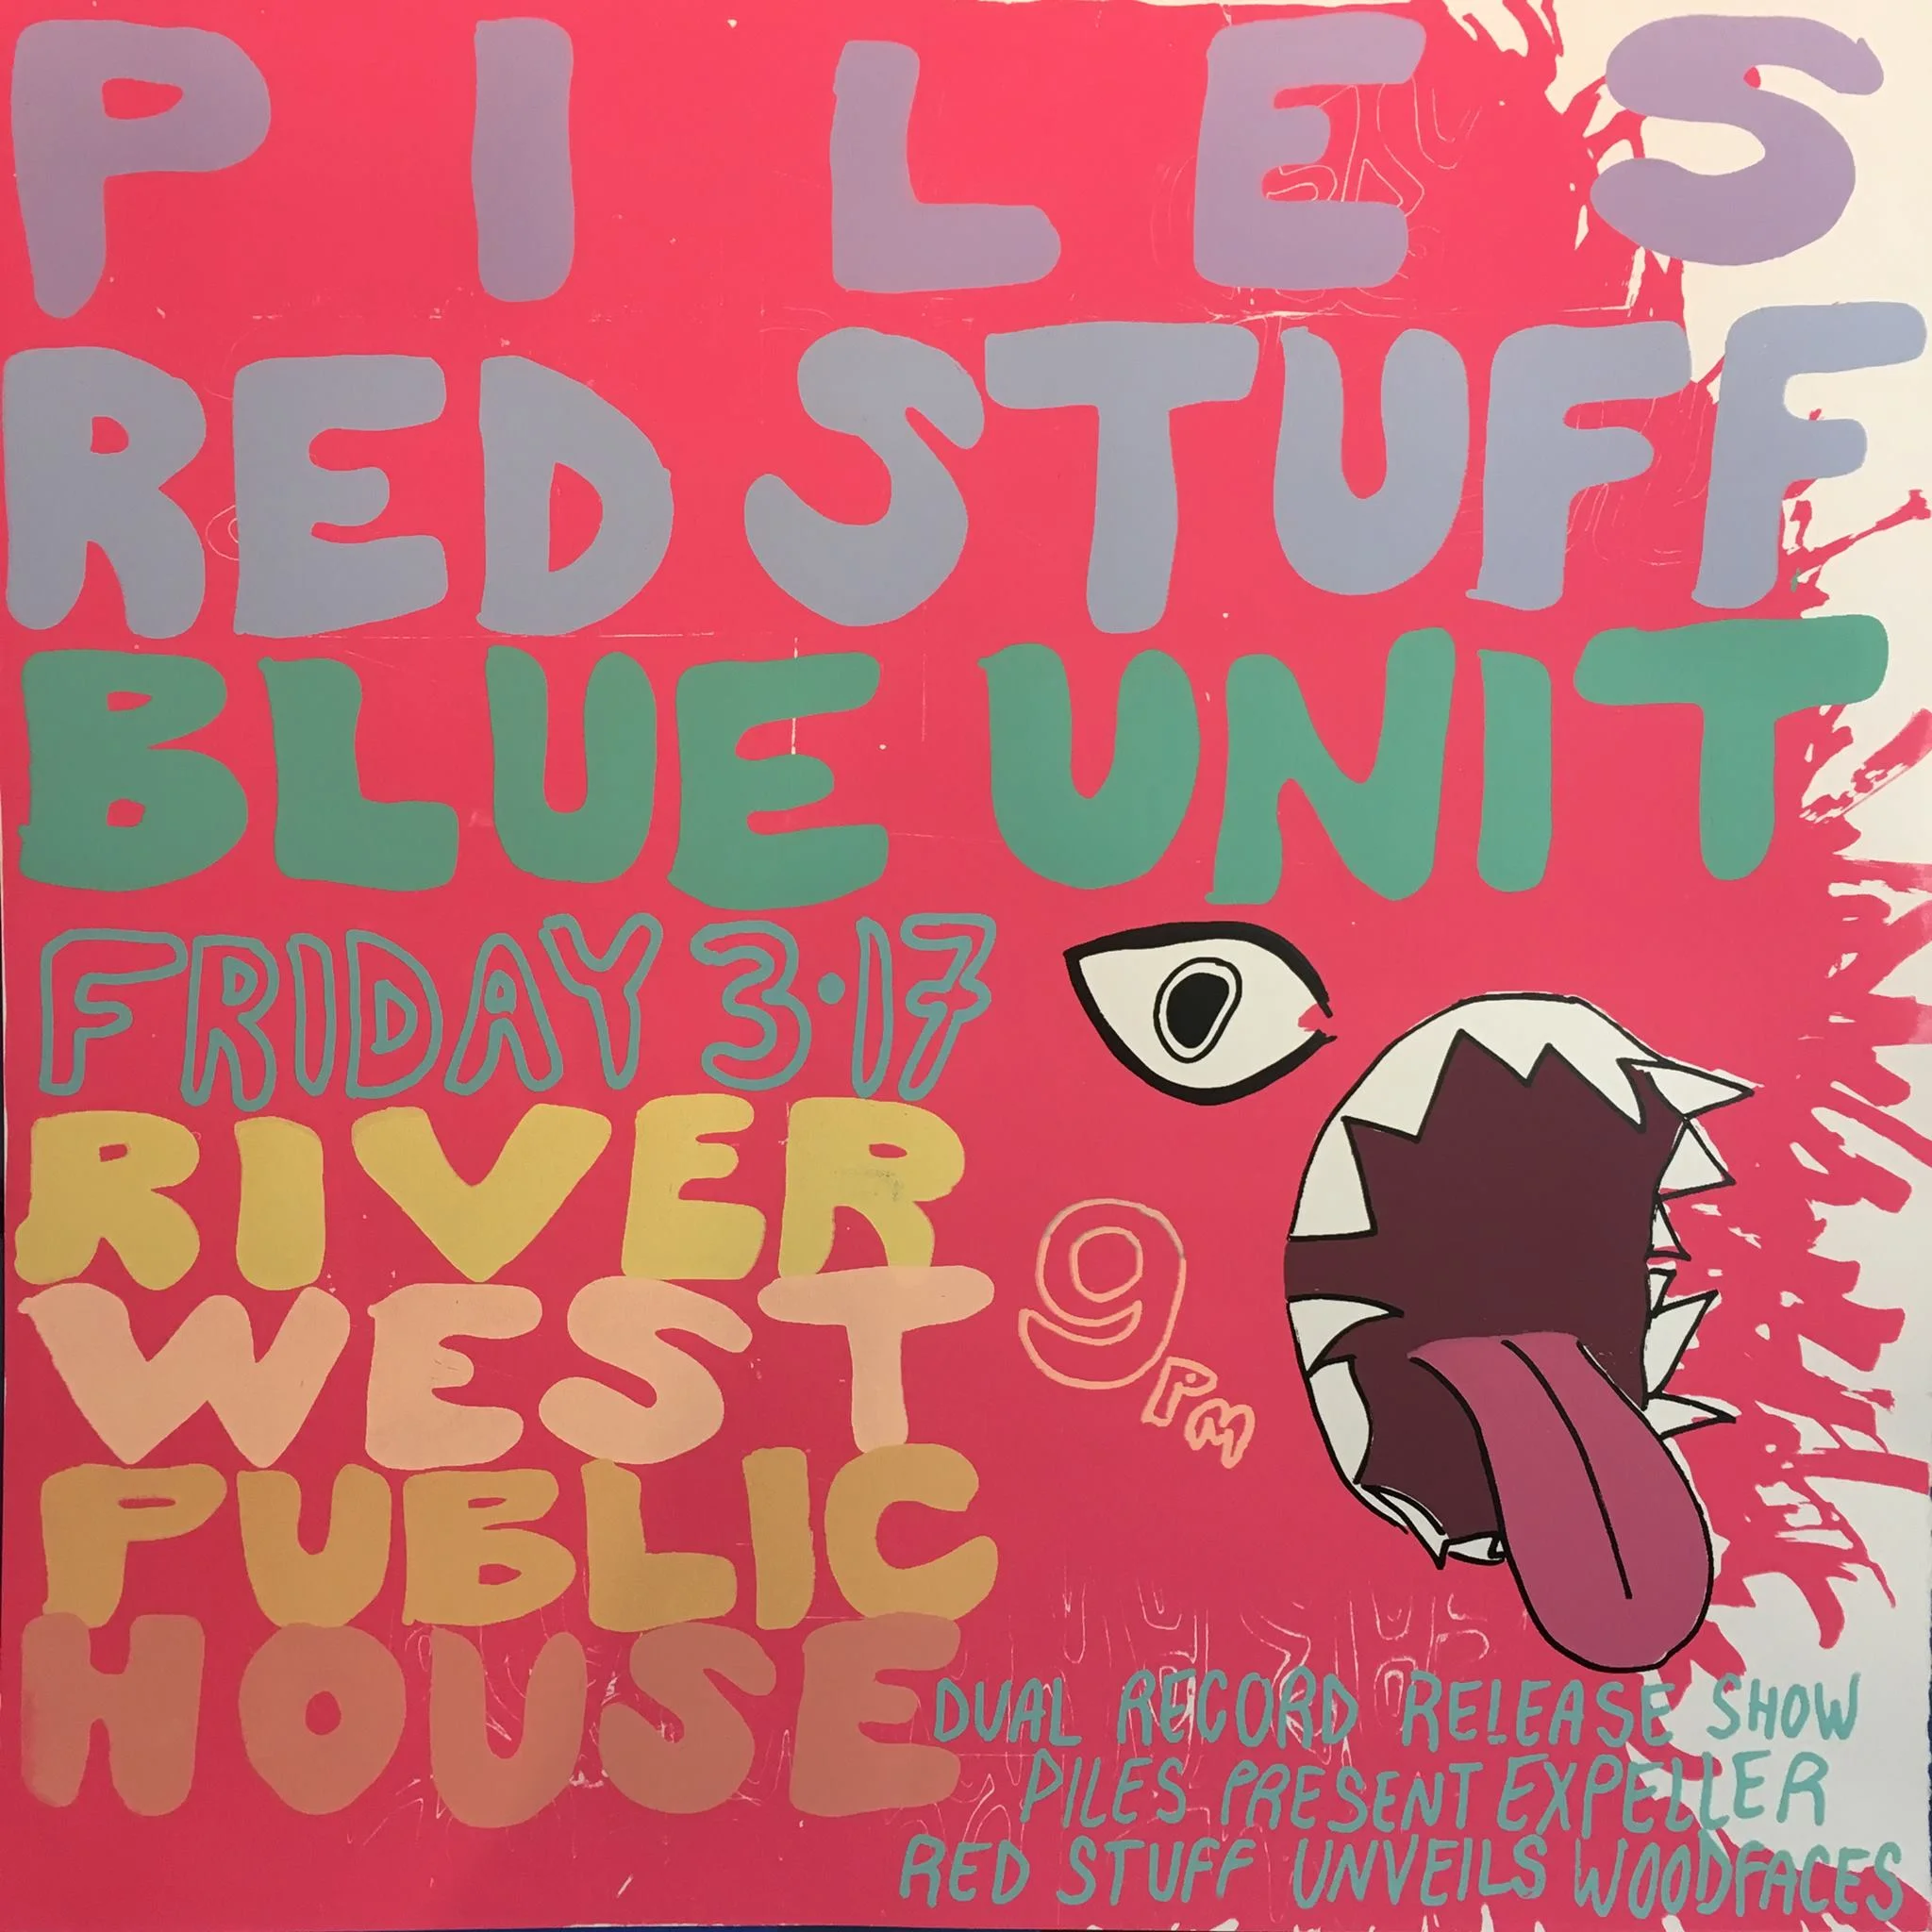 PILES
RED STUFF
BLUE UNIT
FRIDAY 3·17
RIVER
WEST
PUBLIC
HOUSE
9PM
DUAL RECORD RELEASE SHOW
PILES PRESENT EXPELLER
RED STUFF UNVEILS WOODFACES